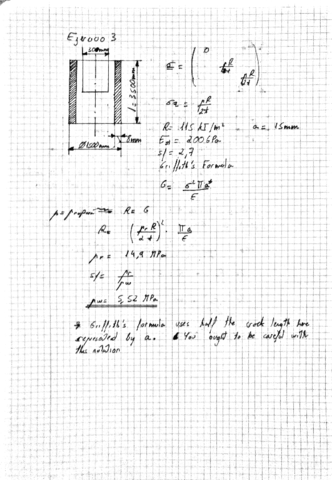 Esercizio 3
l = 3500mm
6mm
Ø1600mm
0
pR/2t
pR/t
σz = pR/2t
R = 115 kJ/m² a = 15mm
E = 200GPa
sf = 2,7
Griffith's Formula
G = σ² π a* / E
R = G
R = (pc R / 2t)² π a / E
pc = 14,9 MPa
sf = pc / pw
pw = 5,52 MPa
* Griffith's formula uses half the crack length here
represented by a. You ought to be careful with
this notation